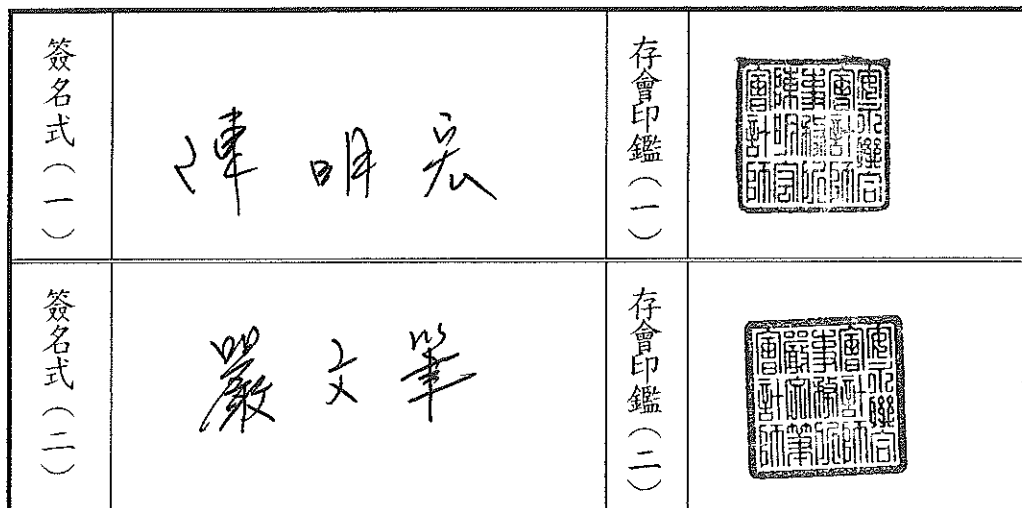 簽名式(一)
陳明宏
存會印鑑(一)
安永聯合
會計師
事務所
陳明宏
會計師
簽名式(二)
嚴文筆
存會印鑑(二)
安永聯合
會計師
事務所
嚴文筆
會計師